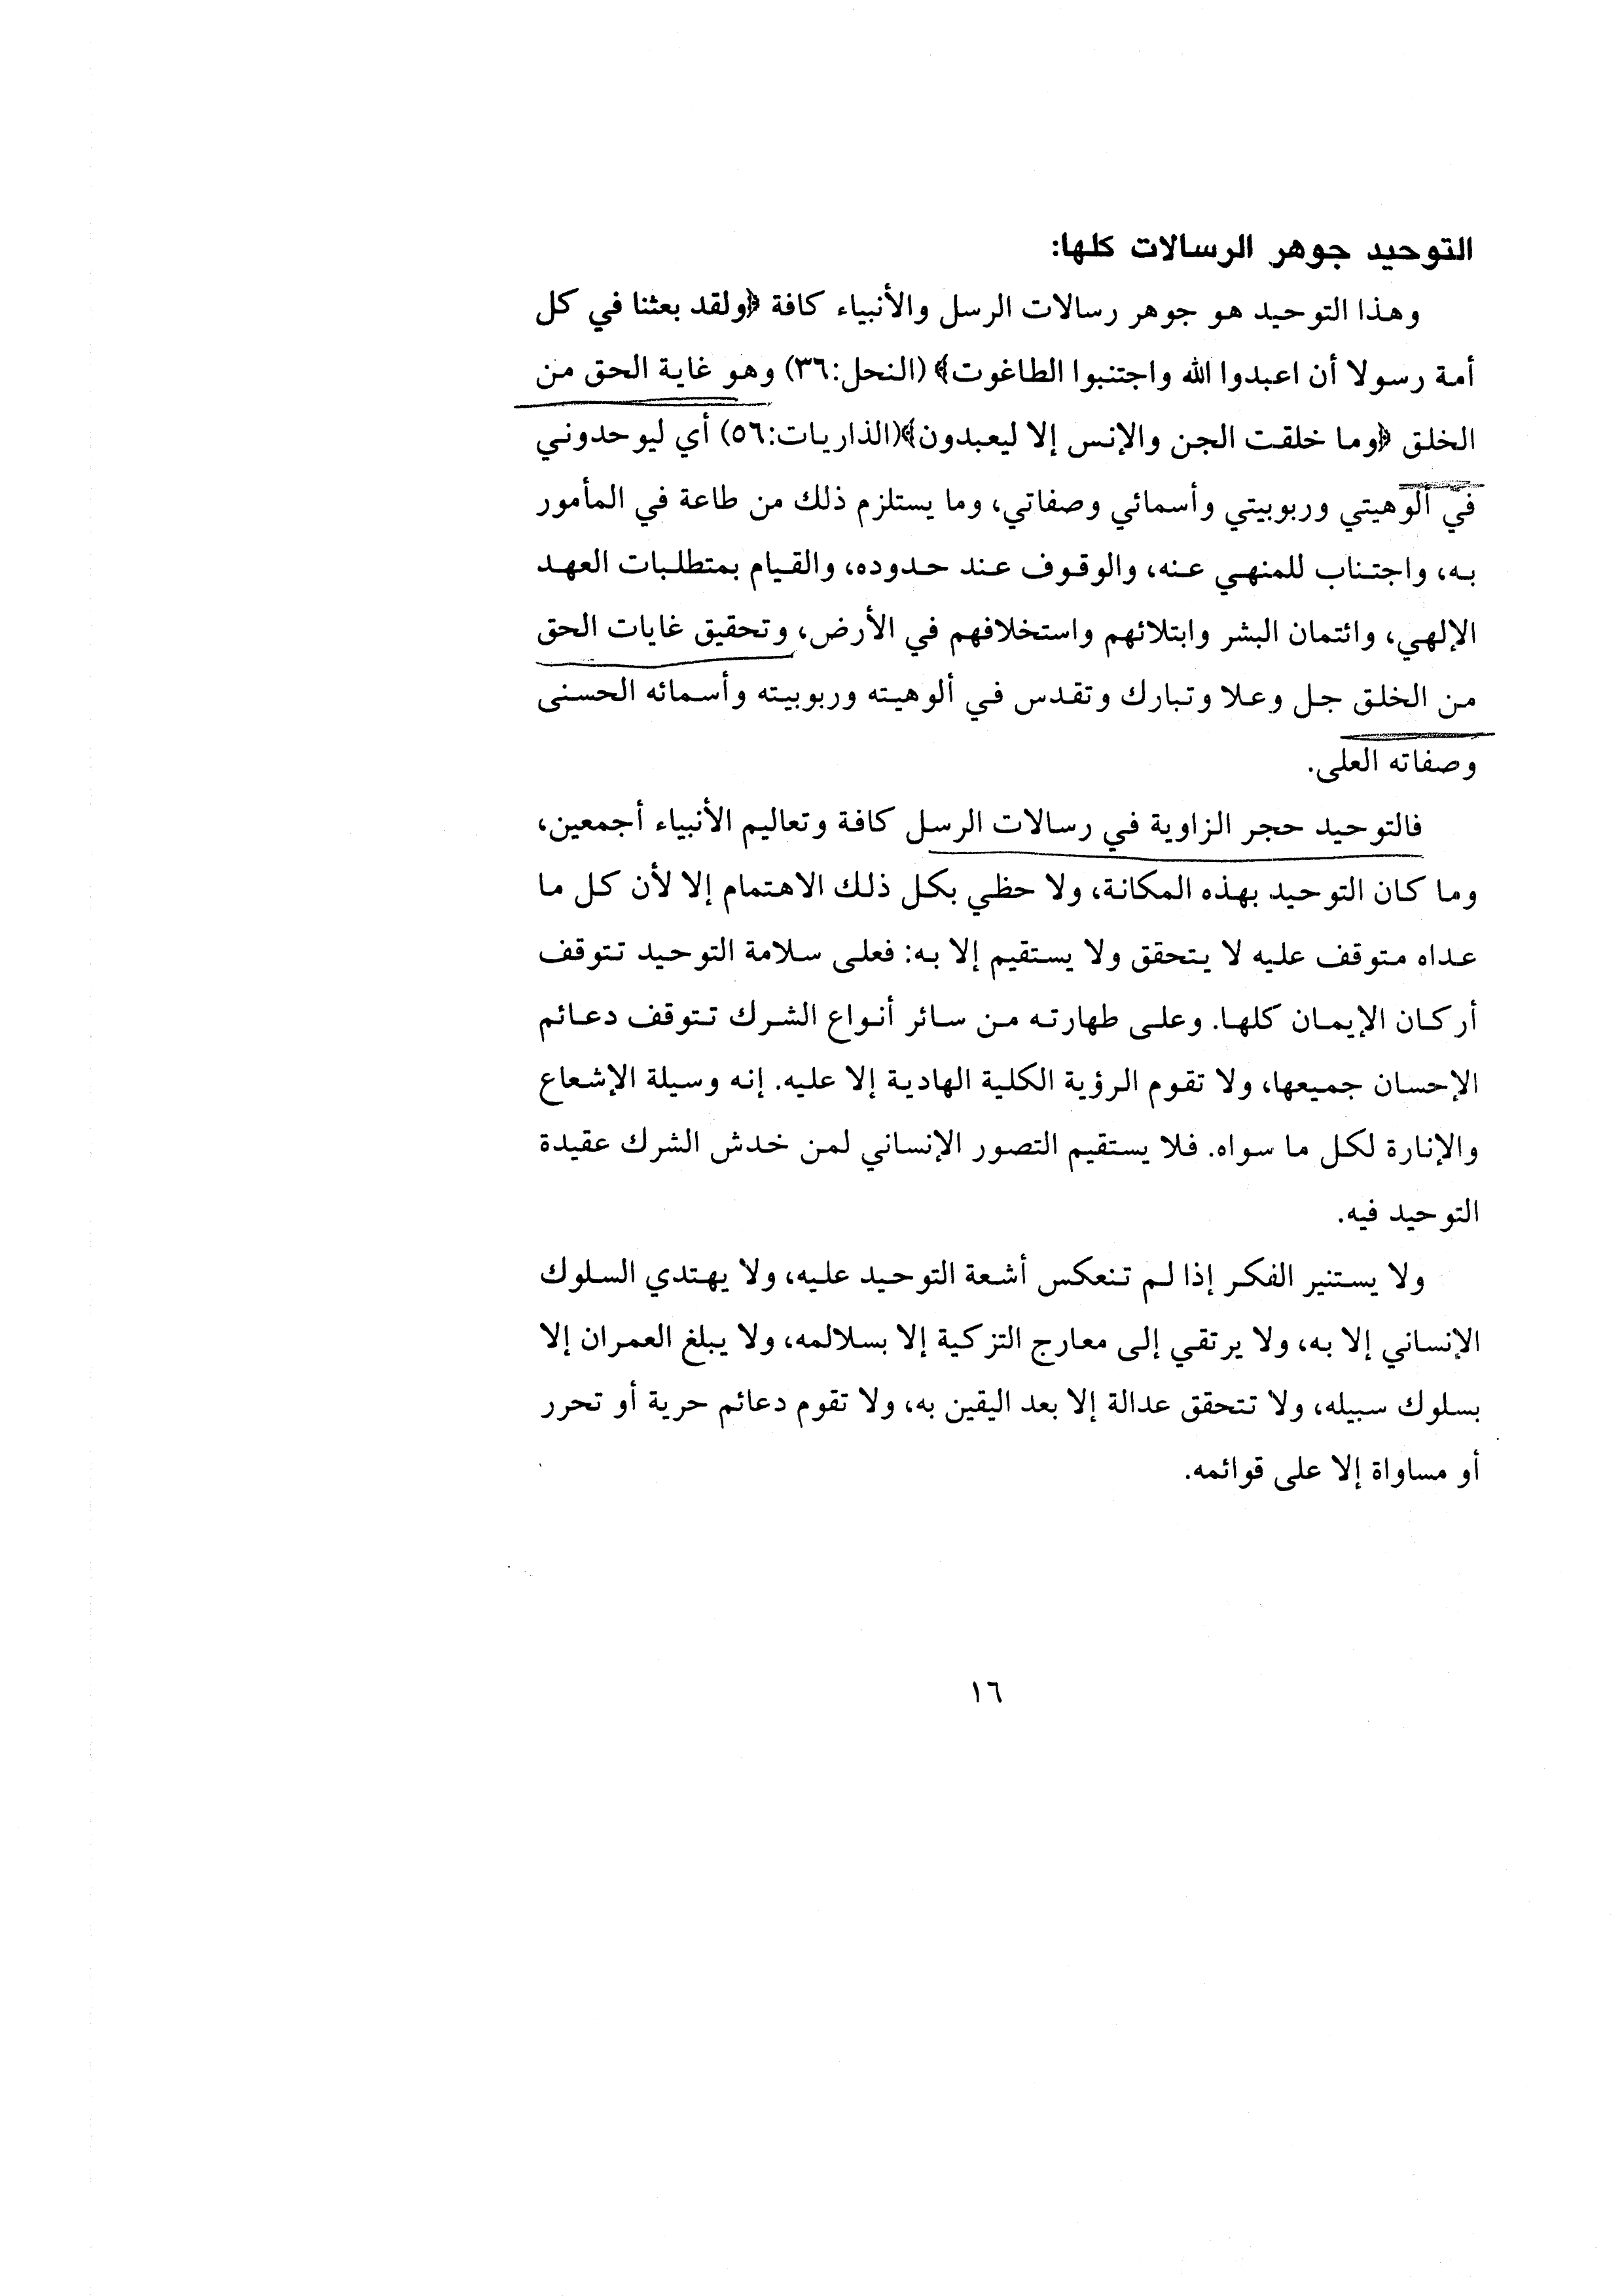 التوحيد جوهر الرسالات كلها:
وهذا التوحيد هو جوهر رسالات الرسل والأنبياء كافة ﴿ولقد بعثنا في كل
أمة رسولا أن اعبدوا الله واجتنبوا الطاغوت﴾ (النحل:٣٦) وهو غاية الحق من
الخلق ﴿وما خلقت الجن والإنس إلا ليعبدون﴾(الذاريات:٥٦) أي ليوحدوني
في ألوهيتي وربوبيتي وأسمائي وصفاتي، وما يستلزم ذلك من طاعة في المأمور
به، واجتناب للمنهي عنه، والوقوف عند حدوده، والقيام بمتطلبات العهد
الإلهي، وائتمان البشر وابتلائهم واستخلافهم في الأرض، وتحقيق غايات الحق
من الخلق جل وعلا وتبارك وتقدس في ألوهيته وربوبيته وأسمائه الحسنى
وصفاته العلى.
فالتوحيد حجر الزاوية في رسالات الرسل كافة وتعاليم الأنبياء أجمعين،
وما كان التوحيد بهذه المكانة، ولا حظي بكل ذلك الاهتمام إلا لأن كل ما
عداه متوقف عليه لا يتحقق ولا يستقيم إلا به: فعلى سلامة التوحيد تتوقف
أركان الإيمان كلها. وعلى طهارته من سائر أنواع الشرك تتوقف دعائم
الإحسان جميعها، ولا تقوم الرؤية الكلية الهادية إلا عليه. إنه وسيلة الإشعاع
والإنارة لكل ما سواه. فلا يستقيم التصور الإنساني لمن خدش الشرك عقيدة
التوحيد فيه.
ولا يستنير الفكر إذا لم تنعكس أشعة التوحيد عليه، ولا يهتدي السلوك
الإنساني إلا به، ولا يرتقي إلى معارج التزكية إلا بسلالمه، ولا يبلغ العمران إلا
بسلوك سبيله، ولا تتحقق عدالة إلا بعد اليقين به، ولا تقوم دعائم حرية أو تحرر
أو مساواة إلا على قوائمه.
١٦